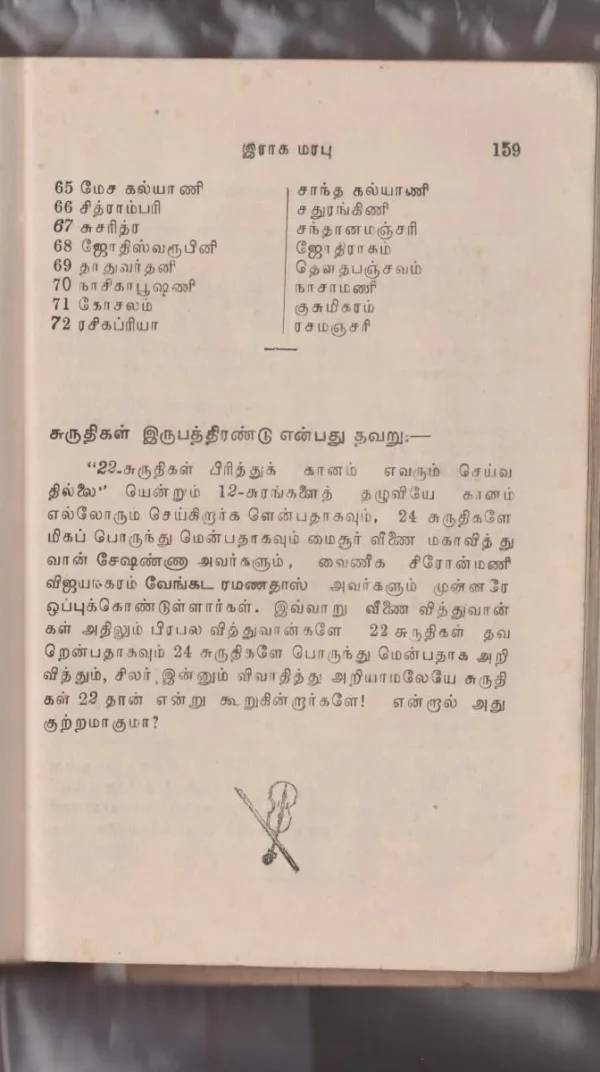 இராக மரபு 159
65 மேச கல்யாணி சாந்த கல்யாணி
66 சித்ராம்பரி சதுரங்கிணி
67 சுசரித்ர சந்தானமஞ்சரி
68 ஜோதிஸ்வரூபினி ஜோதிராகம்
69 தாதுவர்தனி தௌதபஞ்சவம்
70 நாசிகாபூஷணி நாசாமணி
71 கோசலம் குசுமிகரம்
72 ரசிகப்ரியா ரசமஞ்சரி
சுருதிகள் இருபத்திரண்டு என்பது தவறு:—
“22-சுருதிகள் பிரித்துக் கானம் எவரும் செய்வ
தில்லை” யென்றும் 12-சுரங்களைத் தழுவியே கானம்
எல்லோரும் செய்கிறார்க ளென்பதாகவும், 24 சுருதிகளே
மிகப் பொருந்து மென்பதாகவும் மைசூர் வீணை மகாவித்து
வான் சேஷண்ணா அவர்களும், வைணீக சிரோன்மணி
விஜயநகரம் வேங்கட ரமணதாஸ் அவர்களும் முன்னரே
ஒப்புக்கொண்டுள்ளார்கள். இவ்வாறு வீணை வித்துவான்
கள் அதிலும் பிரபல வித்துவான்களே 22 சுருதிகள் தவ
றென்பதாகவும் 24 சுருதிகளே பொருந்து மென்பதாக அறி
வித்தும், சிலர் இன்னும் விவாதித்து அறியாமலேயே சுருதி
கள் 22 தான் என்று கூறுகின்றார்களே! என்றால் அது
குற்றமாகுமா?